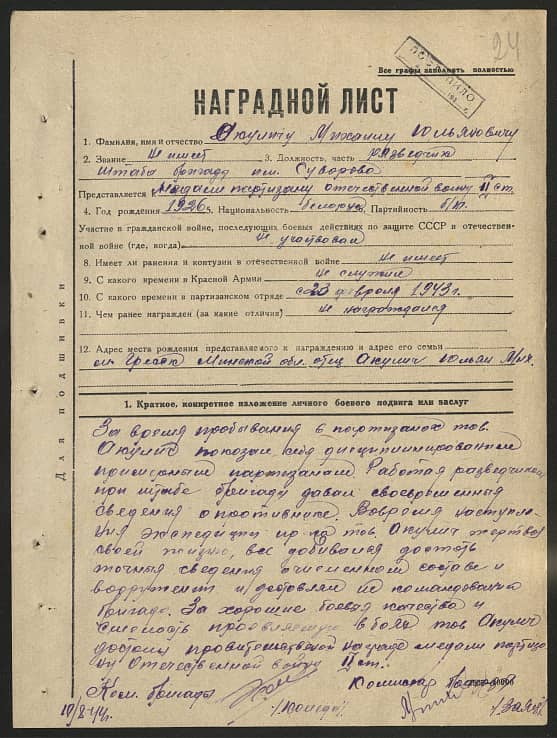 24
ПОСТУПИЛО
Все графы заполнять полностью
НАГРАДНОЙ ЛИСТ
1. Фамилия, имя и отчество Акулич Михаил Юльянович
2. Звание не имеет 3. Должность, часть разведчик
штаба бригады им. Суворова
Представляется к медали партизану отечественной войны II ст.
4. Год рождения 1926 г. Национальность белорус Партийность б/п.
Участие в гражданской войне, последующих боевых действиях по защите СССР и отечествен-
ной войне (где, когда) не участвовал
8. Имеет ли ранения и контузии в отечественной войне не имеет
9. С какого времени в Красной Армии не служил
10. С какого времени в партизанском отряде с 23 февраля 1943 г.
11. Чем ранее награжден (за какие отличия) не награждался
12. Адрес места рождения представляемого к награждению и адрес его семьи
Минской обл. отец Акулич Юльян
Для подшивки
1. Краткое, конкретное изложение личного боевого подвига или заслуг
За время пребывания в партизанах тов.
Акулич показал себя дисциплинированным
примерным партизаном. Работая разведчиком
при штабе бригады давал своевременная
сведения о противнике. Вовремя наступле-
ния экспедиции пр-ка тов. Акулич жертвуя
своей жизнью, все добивался достать
точныя сведения о численном составе и
вооружении и доставлял их командованию
бригады. За хорошие боевыя качества и
смелость проявленную в боях тов. Акулич
достоин правительственной награде медали партиза-
ну Отечественной войны II ст.
Ком. бригады Комиссар бригады
10/8-44г.